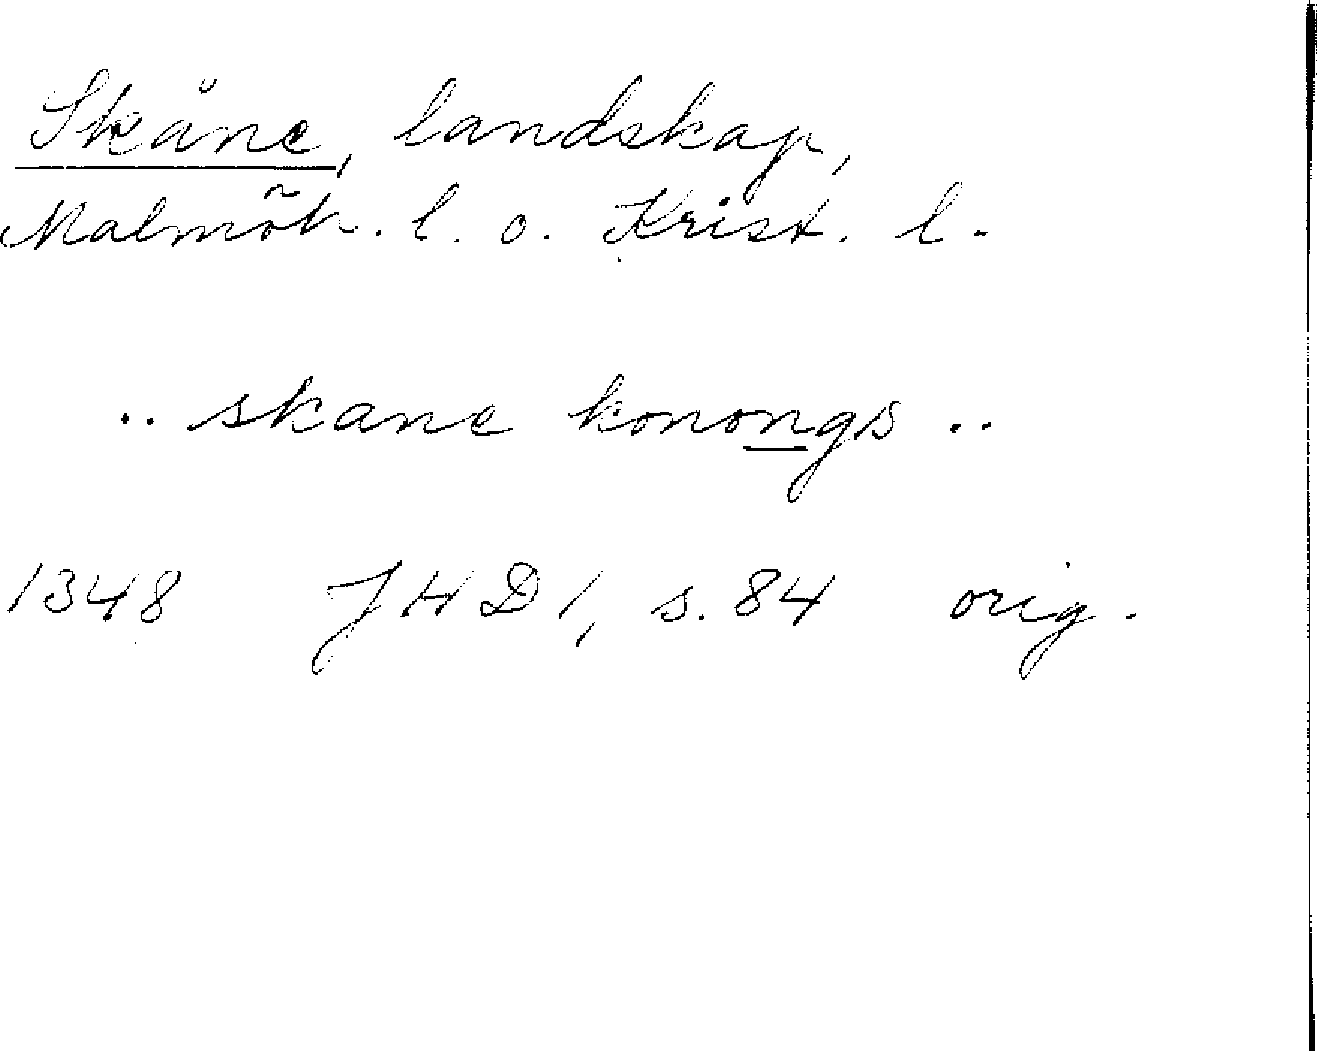 Skåne, landskap,
Malmöh. l. o. Krist. l.
.. skane konongs ..
1348 JHD 1, s. 84 orig.